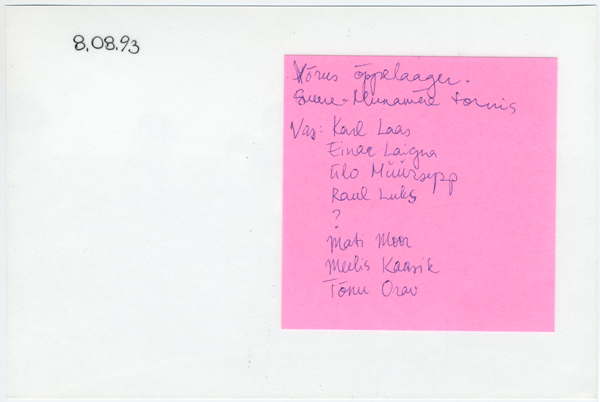 8.08.93
Võrus õppelaager.
Suure-Munamäe tornis
Vas: Karl Laas
Einar Laigna
Ülo Müürsepp
Raul Luks
?
Mati Moor
Meelis Kaarik
Tõnu Orav